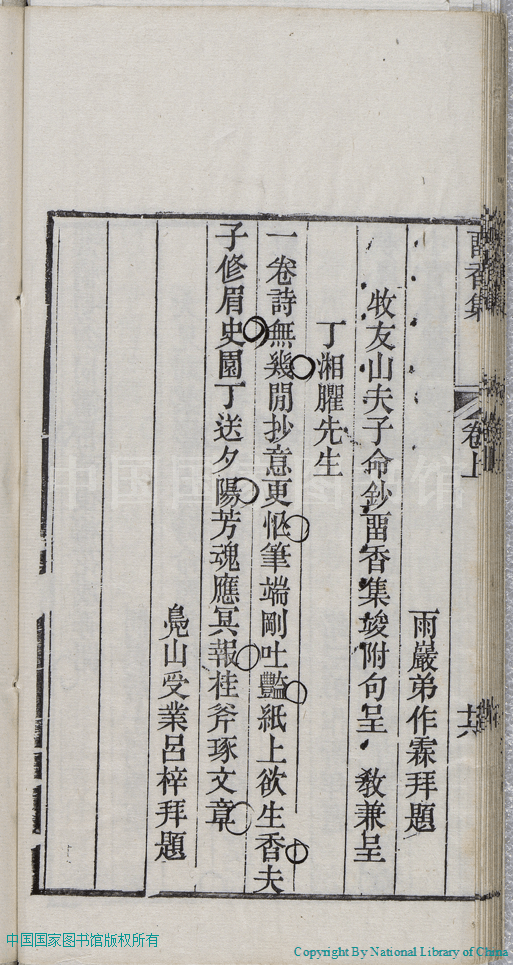 畱香集 卷上 十六
雨巖弟作霖拜題
牧友山夫子命鈔畱香集竣附句呈 敎兼呈
丁湘臞先生
一卷詩無幾閒抄意更怭筆端剛吐豔紙上欲生香夫
子修眉史園丁送夕陽芳魂應冥報桂斧琢文章
鳧山受業呂梓拜題
中国国家图书馆
中国国家图书馆版权所有
Copyright By National Library of China